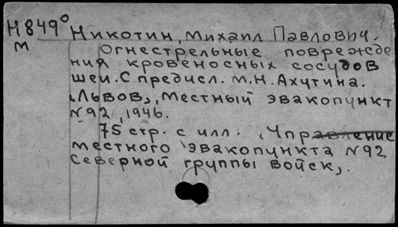 Н849⁰ Никотин, Михаил Павлович.
м Огнестрельные поврежде
ния кровеносных сосудов
шеи. С предисл. М.Н. Ахутина.
"Львов", Местный эвакопункт
N92, 1946.
75 стр. с илл. "Управление
местного эвакопункта N92
Северной группы войск".